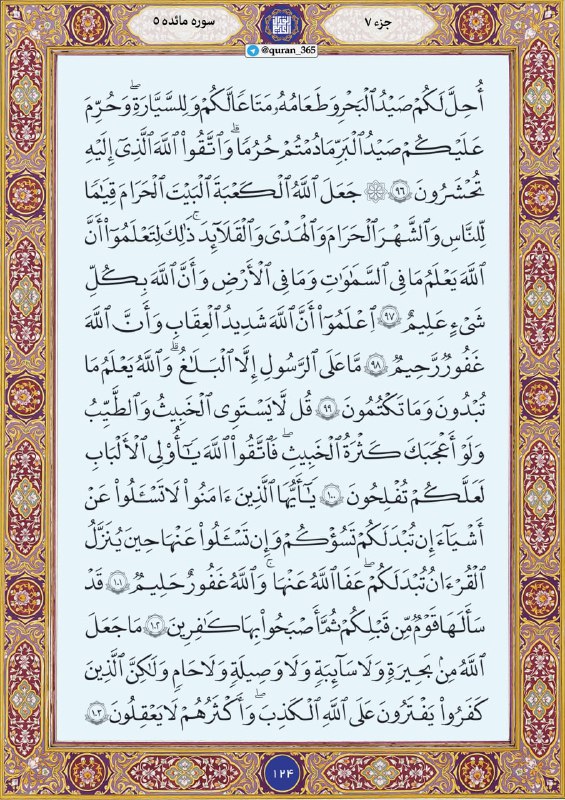 جزء ۷
سوره مائده ۵
@quran_365
أُحِلَّ لَكُمْ صَيْدُ الْبَحْرِ وَطَعَامُهُ مَتَاعًا لَّكُمْ وَلِلسَّيَّارَةِ ۖ وَحُرِّمَ
عَلَيْكُمْ صَيْدُ الْبَرِّ مَا دُمْتُمْ حُرُمًا ۗ وَاتَّقُوا۟ اللَّهَ الَّذِىٓ إِلَيْهِ
تُحْشَرُونَ ٩٦ ۞ جَعَلَ اللَّهُ الْكَعْبَةَ الْبَيْتَ الْحَرَامَ قِيَٰمًا
لِّلنَّاسِ وَالشَّهْرَ الْحَرَامَ وَالْهَدْىَ وَالْقَلَٰٓئِدَ ۚ ذَٰلِكَ لِتَعْلَمُوٓا۟ أَنَّ
اللَّهَ يَعْلَمُ مَا فِى السَّمَٰوَٰتِ وَمَا فِى الْأَرْضِ وَأَنَّ اللَّهَ بِكُلِّ
شَىْءٍ عَلِيمٌ ٩٧ اعْلَمُوٓا۟ أَنَّ اللَّهَ شَدِيدُ الْعِقَابِ وَأَنَّ اللَّهَ
غَفُورٌ رَّحِيمٌ ٩٨ مَّا عَلَى الرَّسُولِ إِلَّا الْبَلَٰغُ ۗ وَاللَّهُ يَعْلَمُ مَا
تُبْدُونَ وَمَا تَكْتُمُونَ ٩٩ قُل لَّا يَسْتَوِى الْخَبِيثُ وَالطَّيِّبُ
وَلَوْ أَعْجَبَكَ كَثْرَةُ الْخَبِيثِ ۚ فَاتَّقُوا۟ اللَّهَ يَٰٓأُو۟لِى الْأَلْبَٰبِ
لَعَلَّكُمْ تُفْلِحُونَ ١٠٠ يَٰٓأَيُّهَا الَّذِينَ ءَامَنُوا۟ لَا تَسْـَٔلُوا۟ عَنْ
أَشْيَآءَ إِن تُبْدَ لَكُمْ تَسُؤْكُمْ وَإِن تَسْـَٔلُوا۟ عَنْهَا حِينَ يُنَزَّلُ
الْقُرْءَانُ تُبْدَ لَكُمْ عَفَا اللَّهُ عَنْهَا ۗ وَاللَّهُ غَفُورٌ حَلِيمٌ ١٠١ قَدْ
سَأَلَهَا قَوْمٌ مِّن قَبْلِكُمْ ثُمَّ أَصْبَحُوا۟ بِهَا كَٰفِرِينَ ١٠٢ مَا جَعَلَ
اللَّهُ مِنۢ بَحِيرَةٍ وَلَا سَآئِبَةٍ وَلَا وَصِيلَةٍ وَلَا حَامٍ وَلَٰكِنَّ الَّذِينَ
كَفَرُوا۟ يَفْتَرُونَ عَلَى اللَّهِ الْكَذِبَ ۖ وَأَكْثَرُهُمْ لَا يَعْقِلُونَ ١٠٣
١٢٤